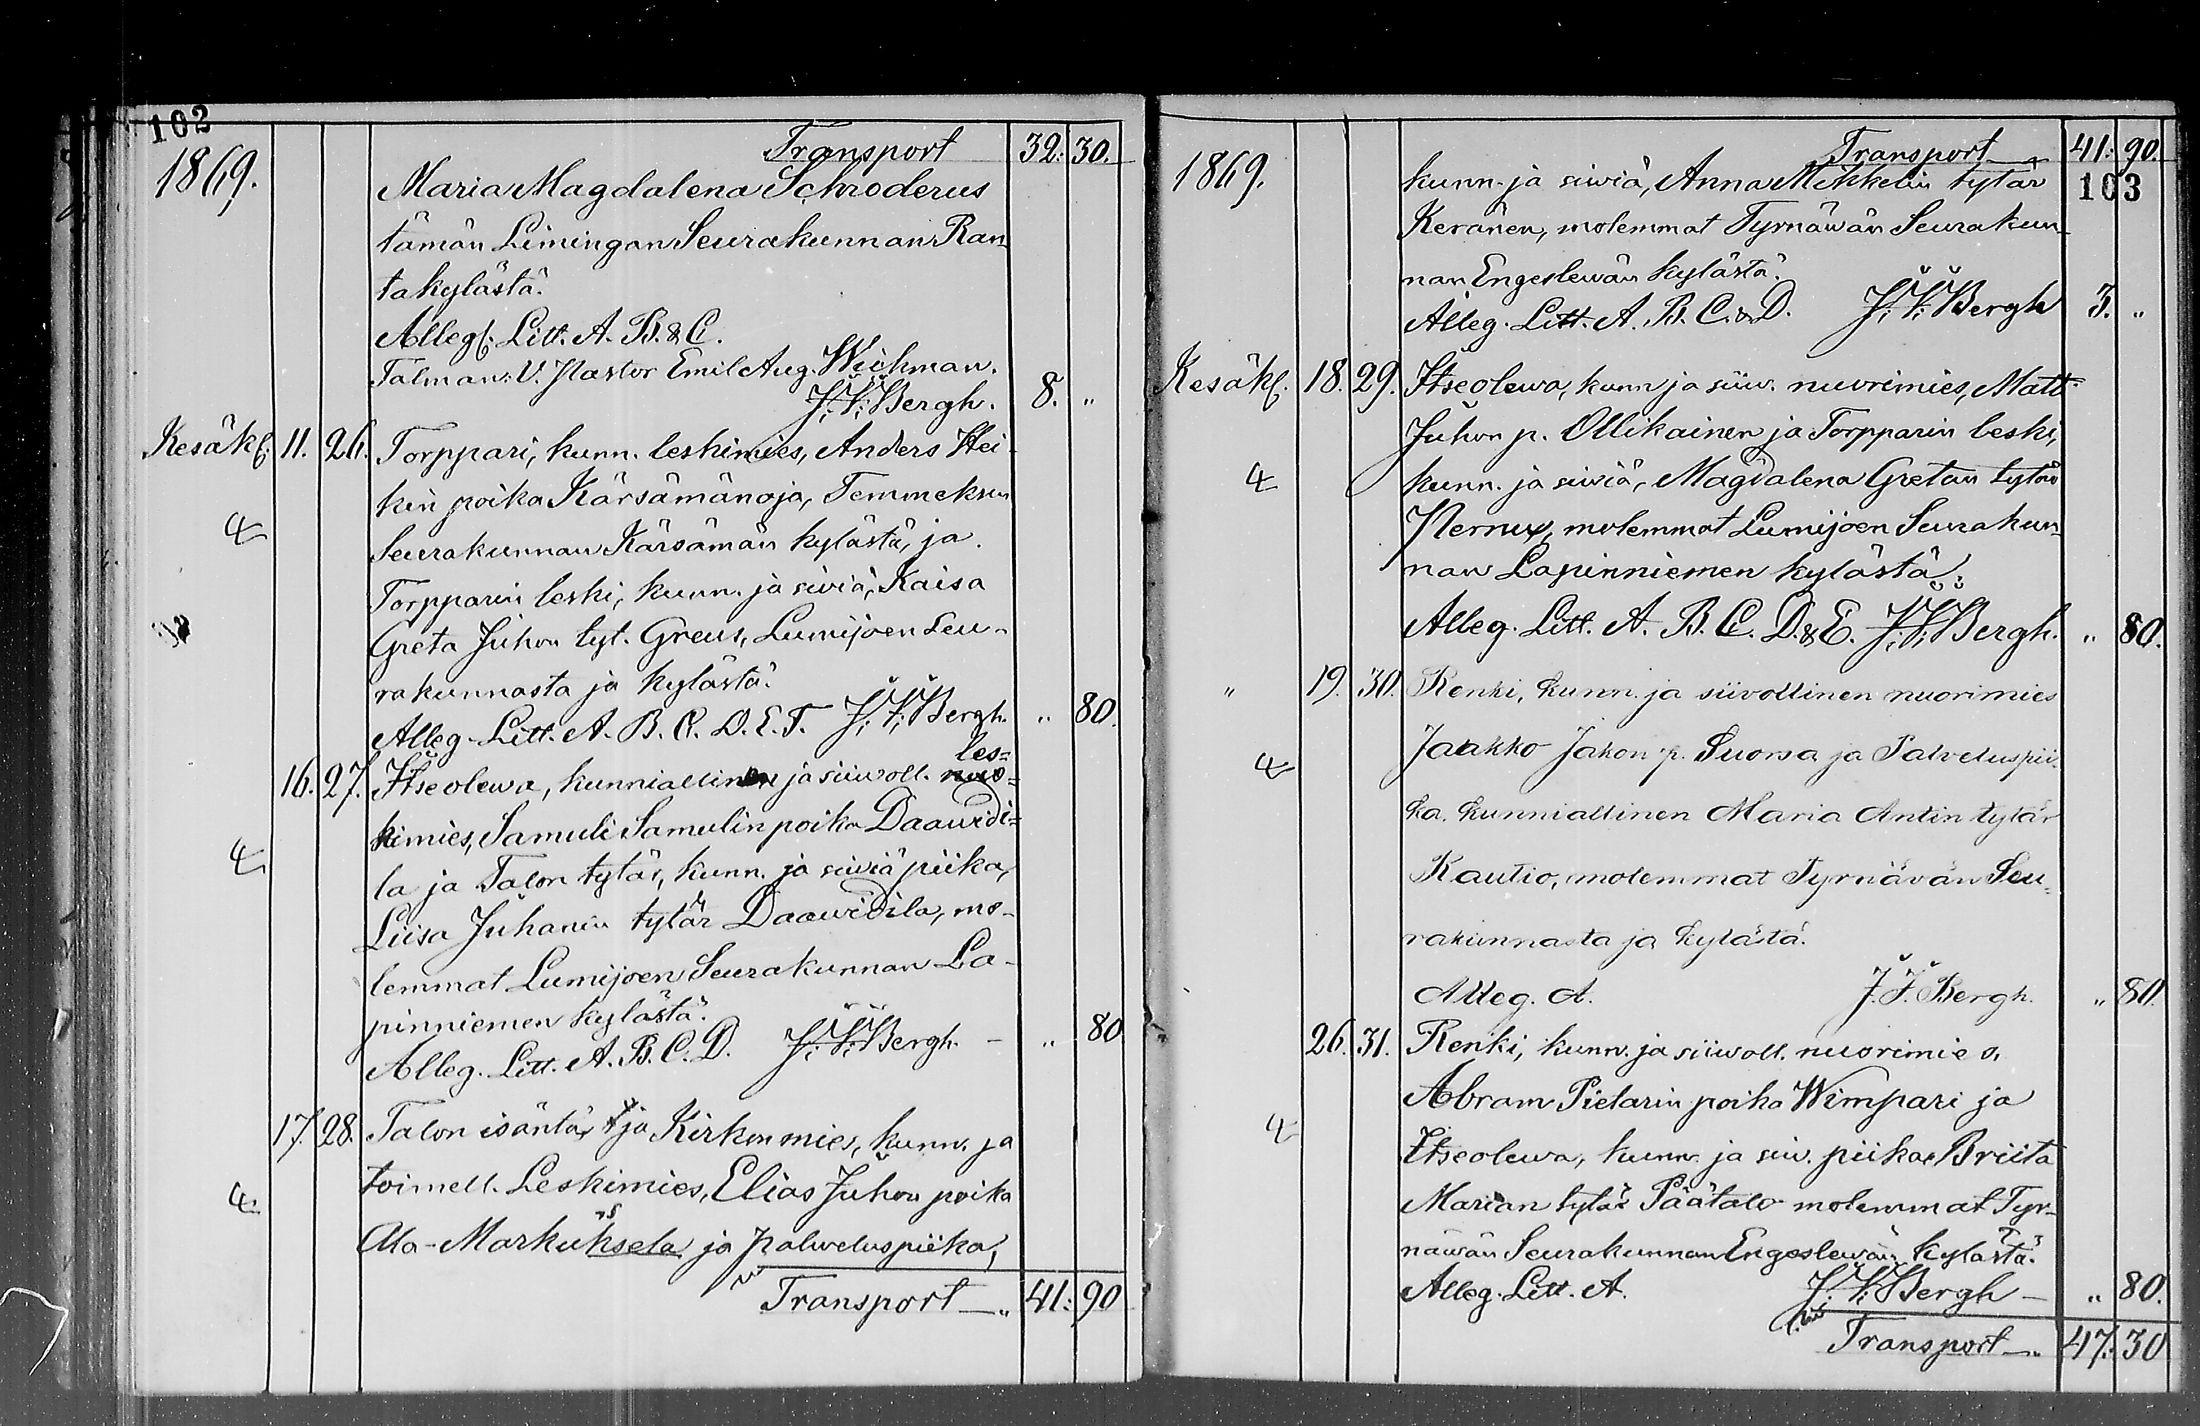 102
1869.
Transport 32: 30.
Maria Magdalena Schroderus
tämän Limingan Seurakunnan Ran-
takylästä.
Alleg. Litt. A. B. & C.
Talman: V. Pastor Emil Aug. Wichman.
J. F. Bergh. 8. "
Kesäk. 11. 26. Torppari, kunn. leskimies, Anders Hei-
kin poika Kärsämänoja, Temmeksen
Seurakunnan Kärsämän kylästä, ja
Torpparin leski, kunn. ja siviä, Kaisa
Greta Juhon tyt. Greus, Lumijoen Seu-
rakunnasta ja kylästä.
Alleg. Litt. A. B. C. D. E. F. J. F. Bergh. " 80.
les=
16. 27. Itseolewa, kunniallinen ja siiwoll. nuo=
kimies, Samuli Samulin poika Daawidi=
la ja Talon tytär, kunn. ja siwiä piika,
Liisa Juhanin tytär Daawidila, mo-
lemmat Lumijoen Seurakunnan La-
pinniemen kylästä.
Alleg. Litt. A. B. C. D. J. F. Bergh. - " 80
17. 28. Talon isäntä, ja Kirkonmies, kunn. ja
toimell. Leskimies, Elias Juhon poika
Ala-Markuksela ja palweluspiika,
Transport - " 41: 90
1869.
Transport 41: 90.
103
kunn. ja siwiä, Anna Mikkelin tytär
Keränen, molemmat Tyrnäwän Seurakun-
nan Engeslewän kylästä.
Alleg. Litt. A. B. C. & D. J. F. Bergh 3. "
Kesäk. 18. 29. Itseolewa, kunn ja siiw. nuorimies, Matt.
Juhon p. Ollikainen ja Torpparin leski,
kunn. ja siwiä, Magdalena Gretan tytär
Pernu, molemmat Lumijoen Seurakun-
nan Lapinniemen kylästä.
Alleg. Litt. A. B. C. D. & E. J. F. Bergh. " 80.
" 19. 30. Renki, kunn. ja siivollinen nuorimies
Jaakko Jakon p. Suorsa ja Palveluspii-
ka. kunniallinen Maria Antin tytär
Kautio, molemmat Tyrnävän Seu-
rakunnasta ja kylästä.
Alleg. A. J. F. Bergh. " 80.
26. 31. Renki, kunn. ja siiwoll. nuorimies,
Abram Pietarin poika Wimpari ja
Itseolewa, kunn. ja siw. piika Briita
Marian tytär Päätalo molemmat Tyr-
näwän Seurakunnan Engeslewän kylästä.
Alleg. Litt. A. J. F. Bergh - " 80.
Transport - " 47: 30